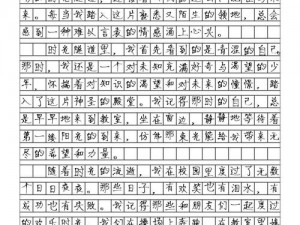 来。每当我踏入这片熟悉又陌生的领地，总会
感到一种难以言表的情感涌上心头。
时光隧道里，我首先看到的是青涩的自己。
那时，我还是一个对未知充满好奇与渴望的少
年，怀揣着对知识的渴望和对未来的憧憬，踏
入了这片神圣的殿堂。我记得那时的自己，总
是早早地来到教室，坐在窗边，静静地等待着
第一缕阳光的到来，仿佛那束光能给我带来无
尽的希望和力量。
随着时光的流逝，我在校园里度过了无数
个日日夜夜。那些日子，有欢笑也有泪水，有
成功也有失败。我记得与朋友们一起度过
的欢乐时光，我们在操场上奔跑，在教室里